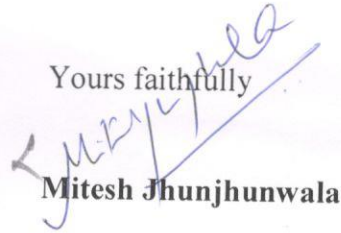 Yours faithfully
Mitesh Jhunjhunwala